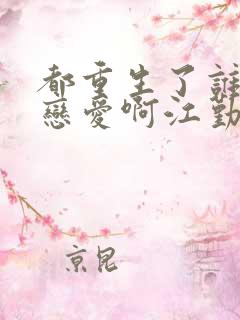 都重生了誰
戀愛啊江勤
京昆